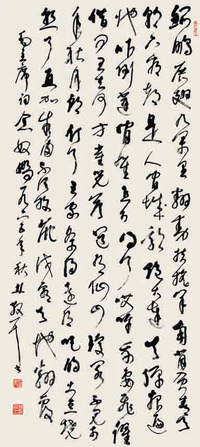 鲲鹏展翅九万里翻动扶摇羊角背负青天
朝下看都是人间城郭炮火连天弹痕遍
地吓倒蓬间雀怎么得了哎呀我要飞跃
借问君去何方雀儿答道有仙山琼阁不见前
年秋月朗订了三家条约还有吃的土豆烧
熟了再加牛肉不须放屁试看天地翻覆
毛主席词念奴娇 年秋 林散耳